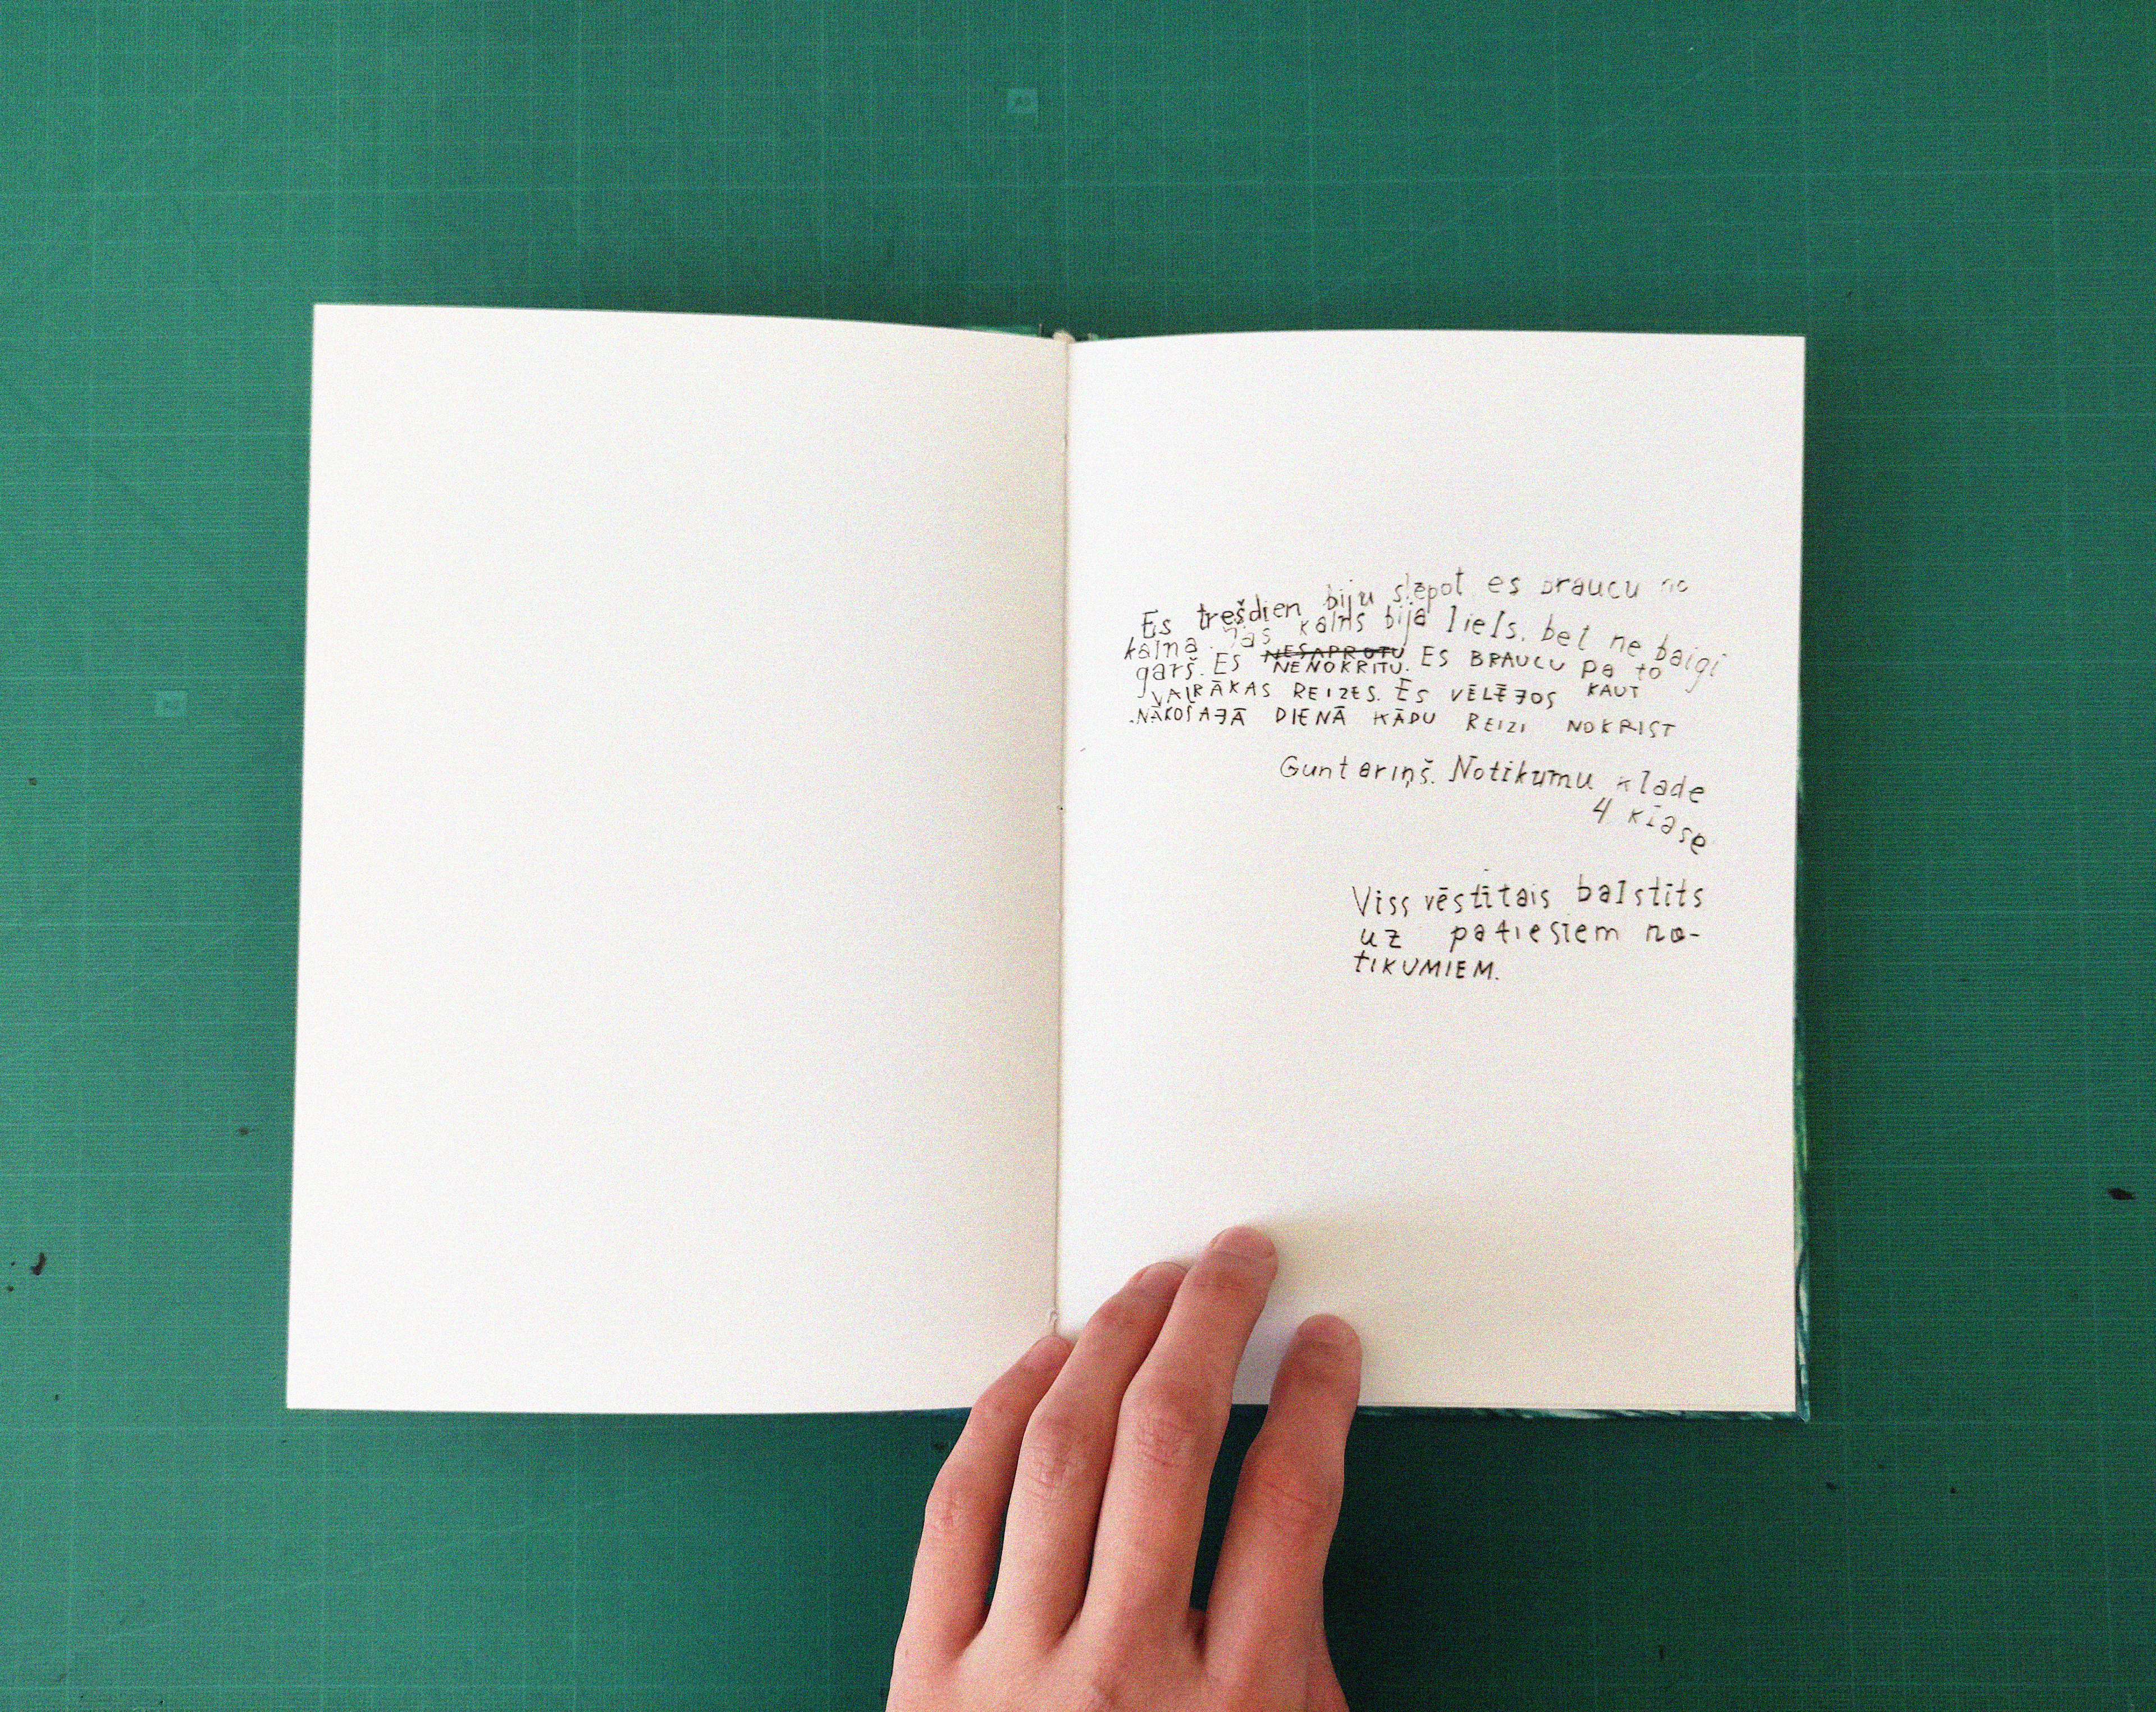 Es trešdien biju slēpot es braucu no
kalna. Tas kalns bija liels, bet ne baigi
garš. Es NESAPROTU NENOKRITU. ES BRAUCU pa to
VAIRĀKAS REIZES. ES VĒLĒJOS KAUT
NĀKOŠAJĀ DIENĀ KĀDU REIZI NOKRIST
Guntariņš. Notikumu klade
4 klase
Viss vēstītais balstīts
uz patiesiem no-
TIKUMIEM.